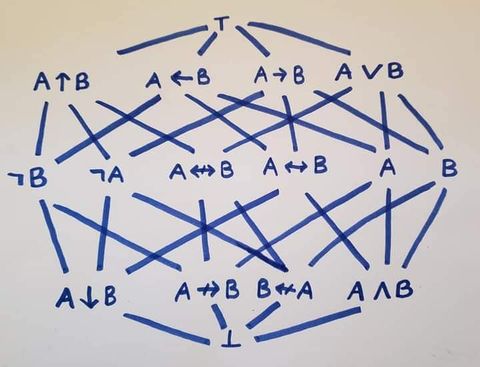 ⊤
A↑B A←B A→B A∨B
¬B ¬A A↮B A↔B A B
A↓B A↛B B↚A A∧B
⊥